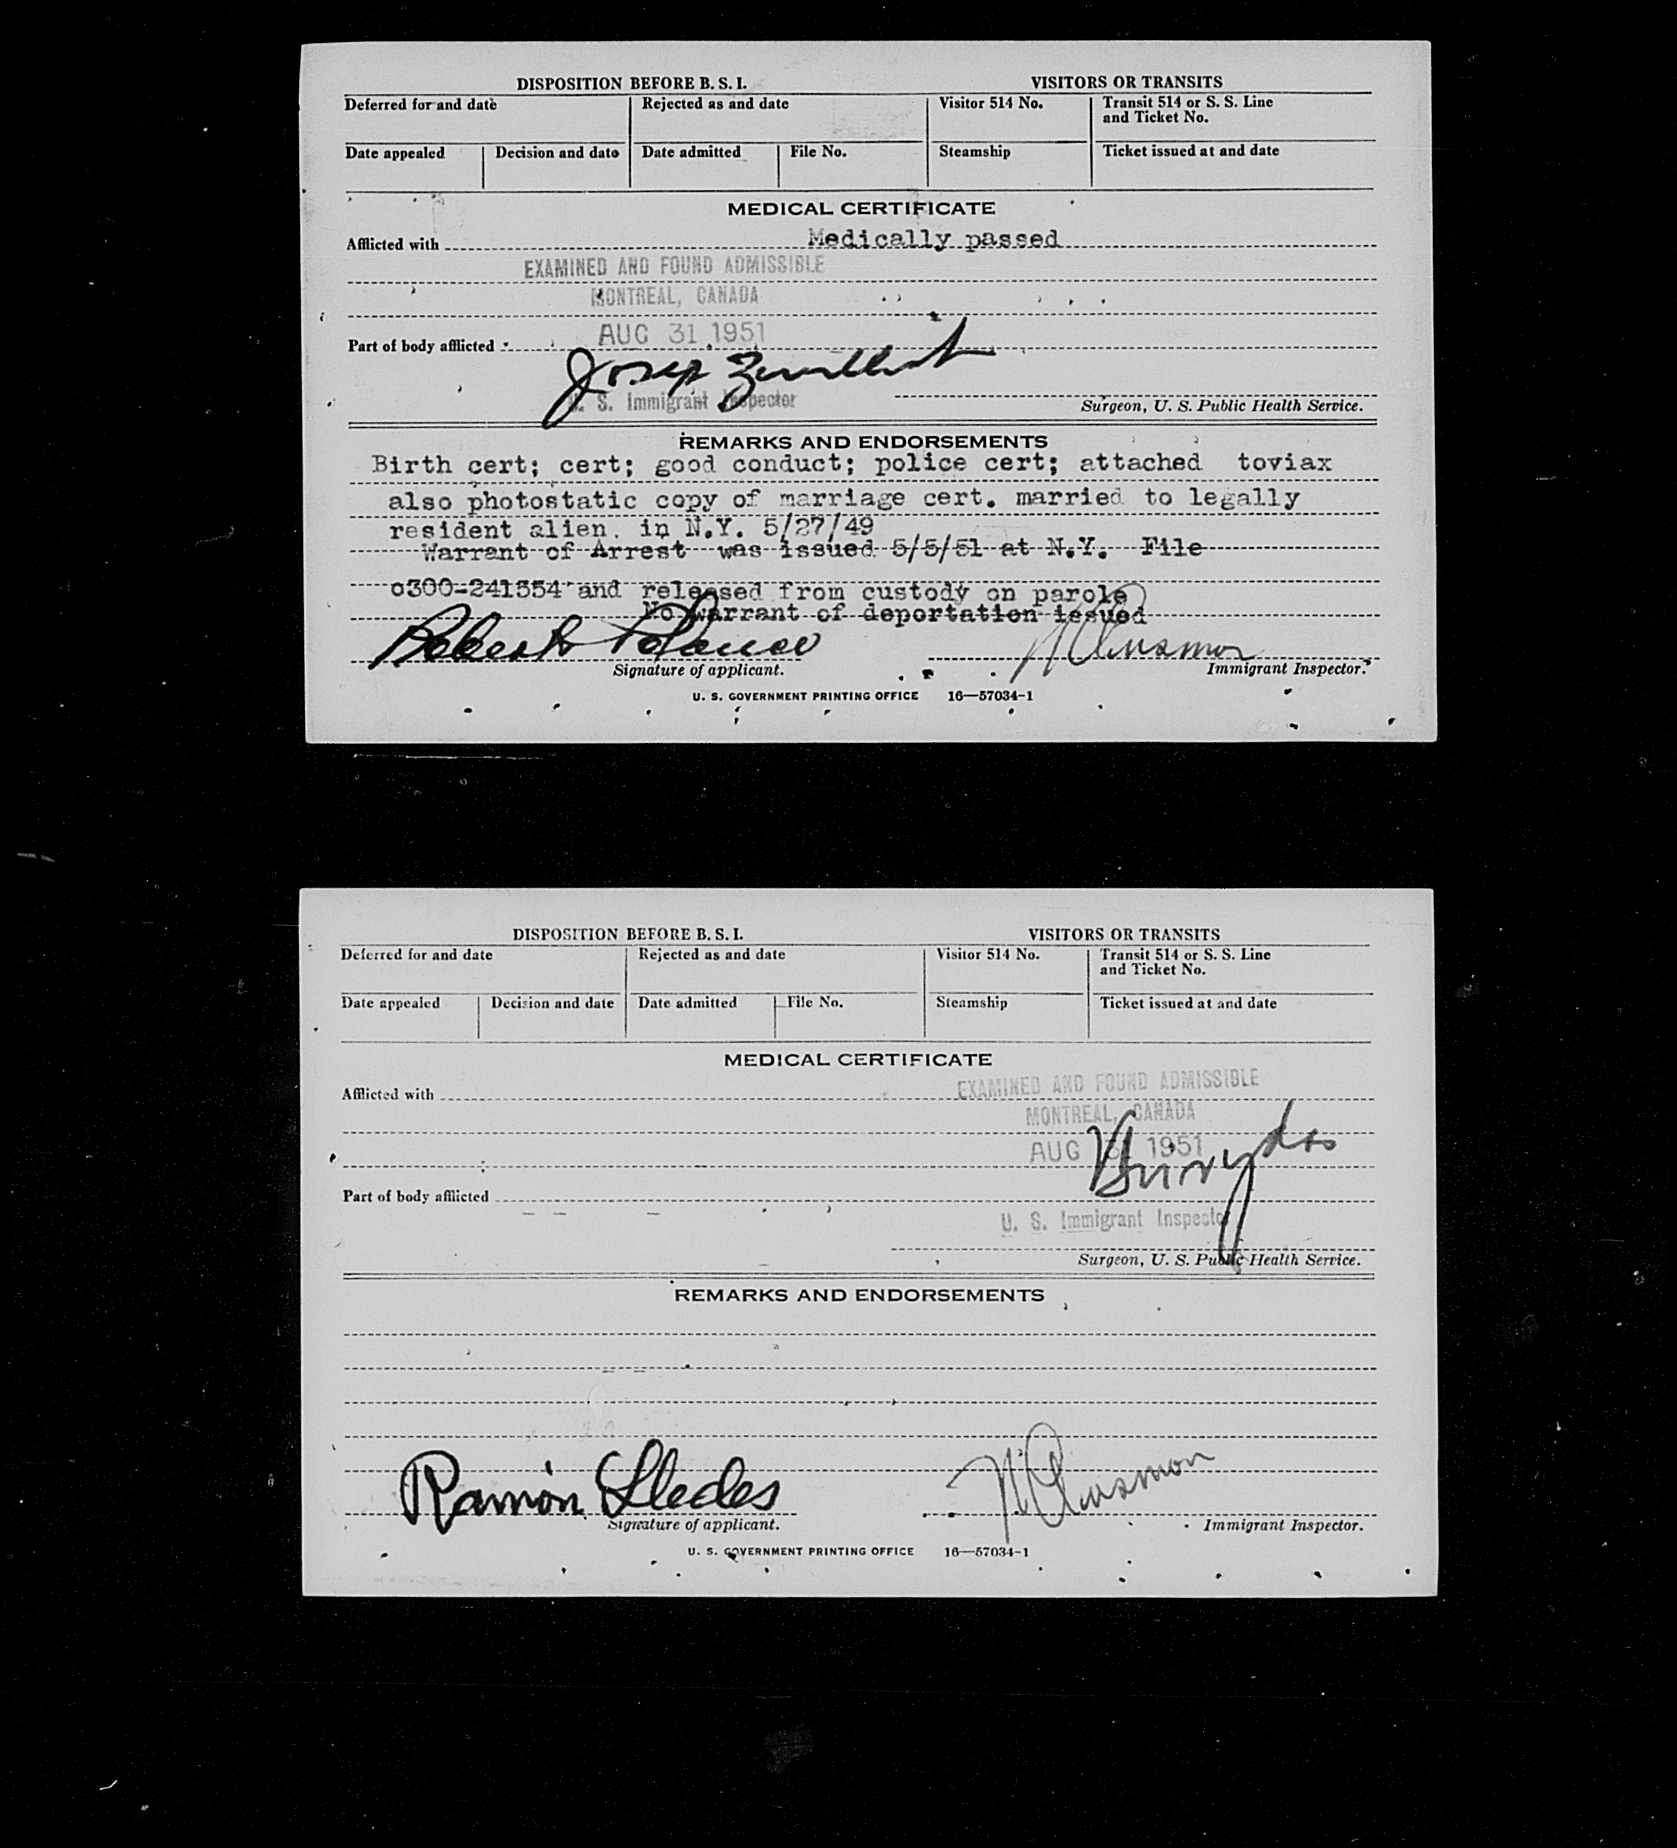 DISPOSITION BEFORE B. S. I. VISITORS OR TRANSITS
Deferred for and date Rejected as and date Visitor 514 No. Transit 514 or S. S. Line
and Ticket No.
Date appealed Decision and date Date admitted File No. Steamship Ticket issued at and date
MEDICAL CERTIFICATE
Afflicted with Medically passed
EXAMINED AND FOUND ADMISSIBLE
MONTREAL, CANADA
AUG 31 1951
Part of body afflicted
Josep
U. S. Immigrant Inspector
Surgeon, U. S. Public Health Service.
REMARKS AND ENDORSEMENTS
Birth cert; cert; good conduct; police cert; attached toviax
also photostatic copy of marriage cert. married to legally
resident alien. in N.Y. 5/27/49
Warrant of Arrest was issued 5/5/51 at N.Y. File
o300-241354 and released from custody on parole
No warrant of deportation issued
Roberto Polanco
Signature of applicant. Immigrant Inspector.
U. S. GOVERNMENT PRINTING OFFICE 16—57034-1
DISPOSITION BEFORE B. S. I. VISITORS OR TRANSITS
Deferred for and date Rejected as and date Visitor 514 No. Transit 514 or S. S. Line
and Ticket No.
Date appealed Decision and date Date admitted File No. Steamship Ticket issued at and date
MEDICAL CERTIFICATE
Afflicted with
EXAMINED AND FOUND ADMISSIBLE
MONTREAL, CANADA
AUG 31 1951
Part of body afflicted
U. S. Immigrant Inspector
Surgeon, U. S. Public Health Service.
REMARKS AND ENDORSEMENTS
Ramón Lledes
Signature of applicant. Immigrant Inspector.
U. S. GOVERNMENT PRINTING OFFICE 16—57034-1